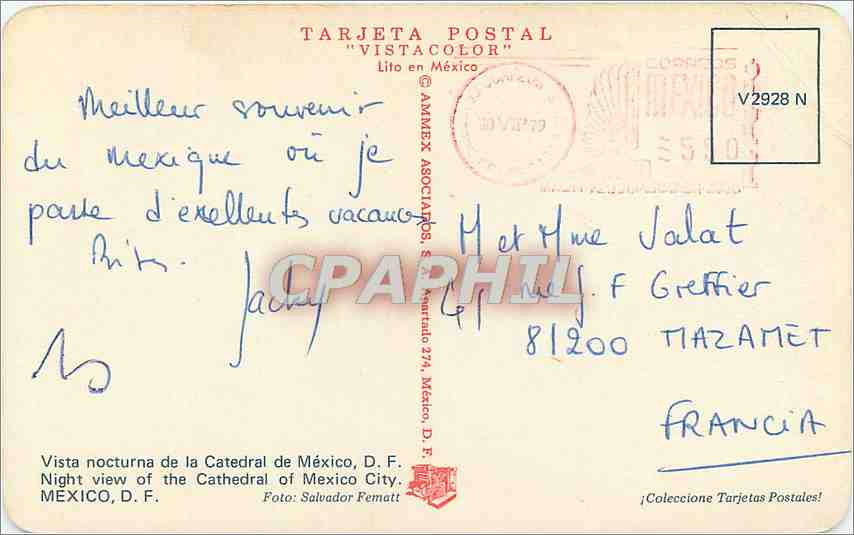 TARJETA POSTAL
"VISTACOLOR"
Lito en México
CORREOS
MEXICO
V2928 N
Meilleur souvenir
du Mexique où je
passe d'exellentes vacances
Bises.
Jacky
M et Mme Jalat
41 rue J. F Greffier
81200 MAZAMET
FRANCIA
CPAPHIL
© AMMEX ASOCIADOS, S. A. Apartado 274, México, D. F.
Vista nocturna de la Catedral de México, D. F.
Night view of the Cathedral of Mexico City.
MEXICO, D. F.
Foto: Salvador Fematt
¡Coleccione Tarjetas Postales!